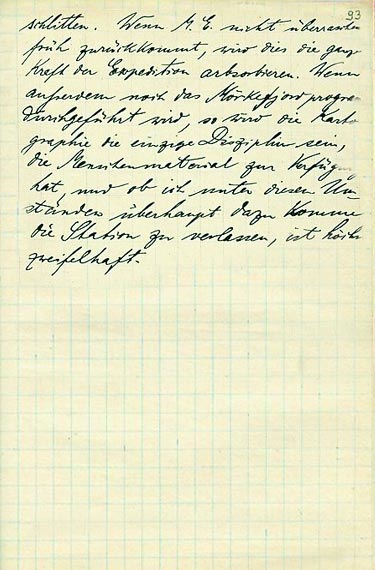 93
schlitten. Wenn M. E. nicht überraschen
früh zurückkommt, wird dies die ganze
Kraft der Expedition arbsorbieren. Wenn
ausserdem noch das Mörkefjordprogra
durchgeführt wird, so wird die Karto
graphie die einzige Disziplin sein,
die Menschenmaterial zur Verfügu
hat, und ob ich unter diesen Um
ständen überhaupt dazu komme
die Station zu verlassen, ist höchs
zweifelhaft.